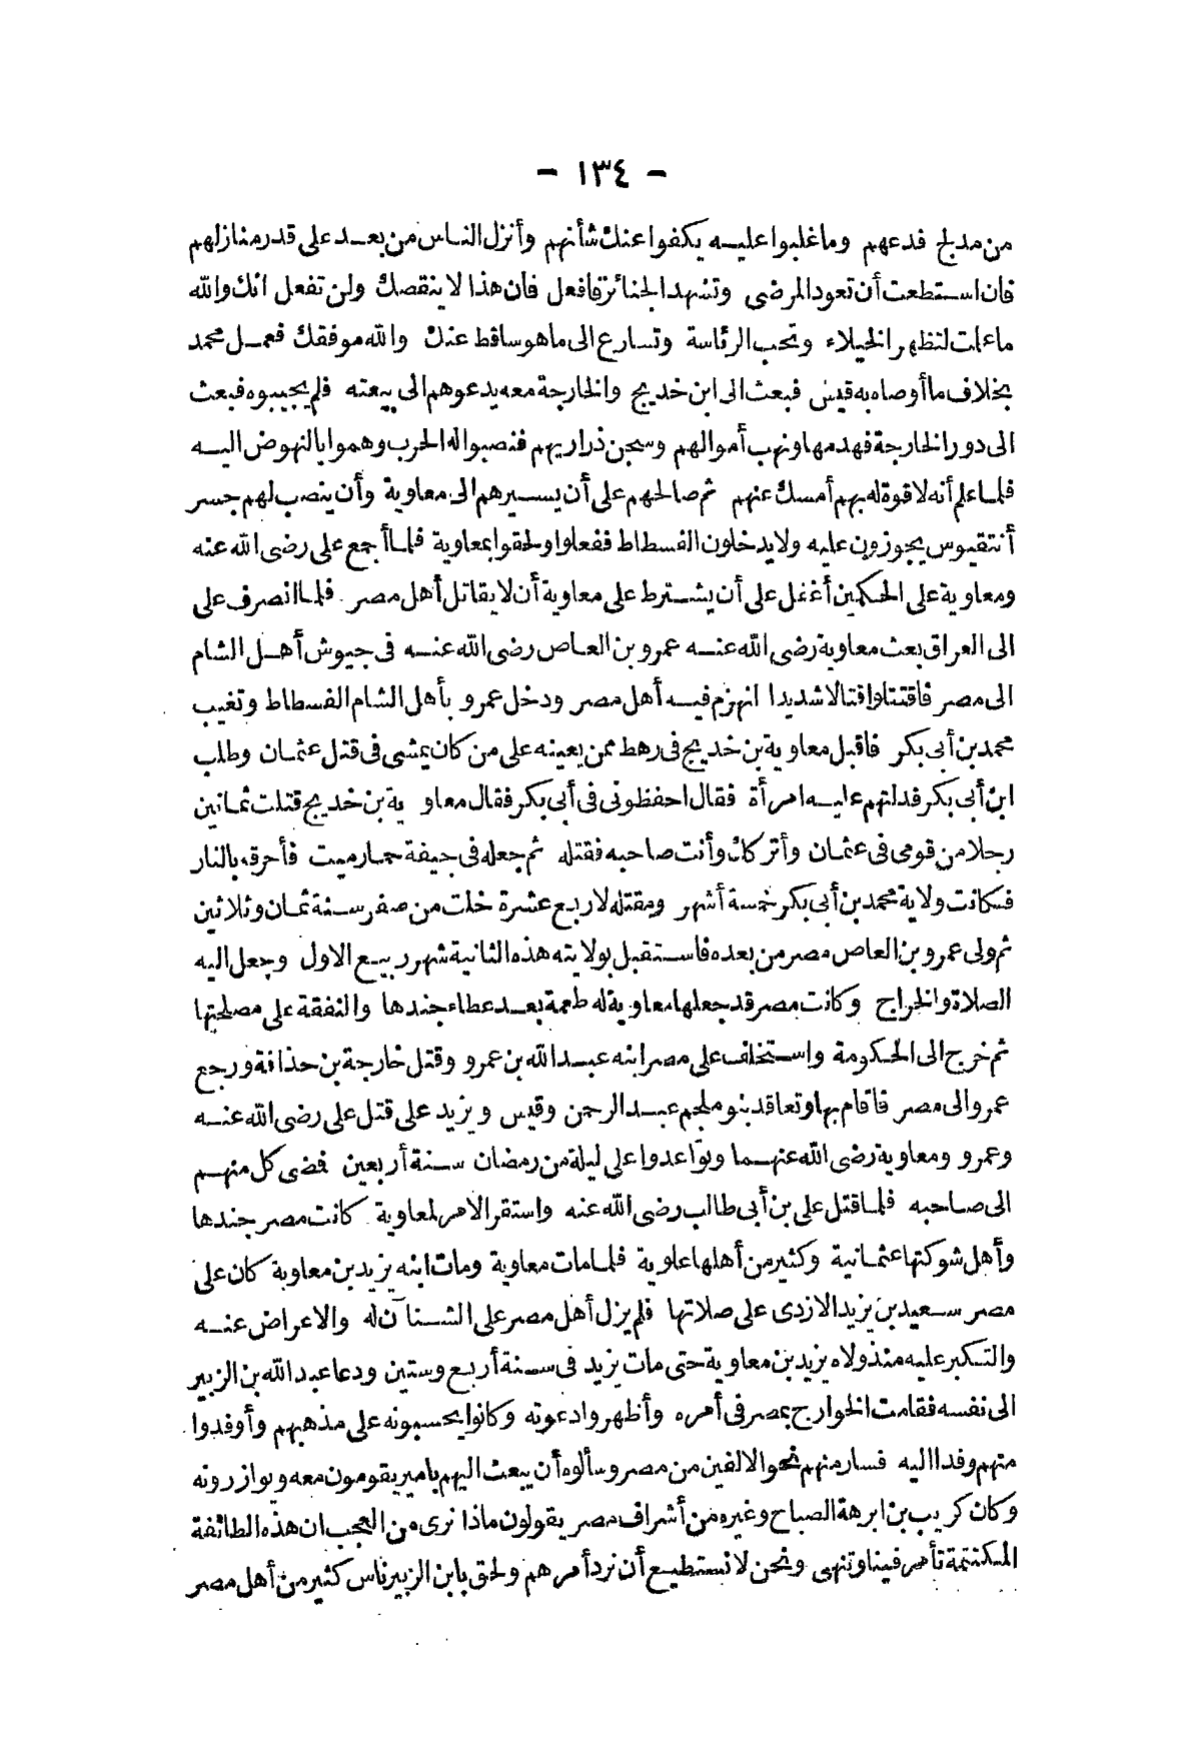 - ١٣٤ -
من مدلج فدعهم وما غلبوا عليه يكفوا عنك شأنهم وأنزل الناس من بعد على قدر منازلهم
فان استطعت أن تعود المرضى وتشهد الجنائز فافعل فان هذا لا ينقصك ولن تفعل انك والله
ما علمت لتظهر الخيلاء وتحب الرئاسة وتسارع الى ما هو ساقط عنك والله موفقك فعمل محمد
بخلاف ما أوصاه به قيس فبعث الى ابن خديج والخارجة معه يدعوهم الى بيعته فلم يجيبوه فبعث
الى دور الخارجة فهدمها ونهب أموالهم وسجن ذراريهم فنصبوا له الحرب وهموا بالنهوض اليه
فلما علم أنه لا قوة له بهم أمسك عنهم ثم صالحهم على أن يسيرهم الى معاوية وأن ينصب لهم جسر
أنتقيوس يجوزون عليه ولا يدخلون الفسطاط ففعلوا ولحقوا بمعاوية فلما أجمع على رضى الله عنه
ومعاوية على الحكمين أغفل على أن يشترط على معاوية أن لا يقاتل أهل مصر فلما انصرف على
الى العراق بعث معاوية رضى الله عنه عمرو بن العاص رضى الله عنه فى جيوش أهل الشام
الى مصر فاقتتلوا قتالا شديدا انهزم فيه أهل مصر ودخل عمرو بأهل الشام الفسطاط وتغيب
محمد بن أبى بكر فاقبل معاوية بن خديج فى رهط ممن يعينه على من كان يمشى فى قتل عثمان وطلب
ابن أبى بكر فدلتهم عليه امرأة فقال احفظونى فى أبى بكر فقال معاوية بن خديج قتلت ثمانين
رجلا من قومى فى عثمان وأتركك وأنت صاحبه فقتله ثم جعله فى جيفة حمار ميت فأحرقه بالنار
فكانت ولاية محمد بن أبى بكر خمسة أشهر ومقتله لاربع عشرة خلت من صفر سنة ثمان وثلاثين
ثم ولى عمرو بن العاص مصر من بعده فاستقبل بولايته هذه الثانية شهر ربيع الاول وجعل اليه
الصلاة والخراج وكانت مصر قد جعلها معاوية له طعمة بعد عطاء جندها والنفقة على مصلحتها
ثم خرج الى الحكومة واستخلف على مصر ابنه عبد الله بن عمرو وقتل خارجة بن حذافة ورجع
عمرو الى مصر فاقام بها وتعاقد بنو ملجم عبد الرحمن وقيس ويزيد على قتل على رضى الله عنه
وعمرو ومعاوية رضى الله عنهما وتواعدوا على ليلة من رمضان سنة أربعين فمضى كل منهم
الى صاحبه فلما قتل على بن أبى طالب رضى الله عنه واستقر الامر لمعاوية كانت مصر جندها
وأهل شوكتها عثمانية وكثير من أهلها علوية فلما مات معاوية ومات ابنه يزيد بن معاوية كان على
مصر سعيد بن يزيد الازدى على صلاتها فلم يزل أهل مصر على الشنآن له والاعراض عنه
والتكبر عليه منذ ولاه يزيد بن معاوية حتى مات يزيد فى سنة أربع وستين ودعا عبد الله بن الزبير
الى نفسه فقامت الخوارج بمصر فى أمره وأظهروا دعوته وكانوا يحسبونه على مذهبهم وأوفدوا
منهم وفدا اليه فسار منهم نحو الالفين من مصر وسألوه أن يبعث اليهم بامير يقومون معه ويوازرونه
وكان كريب بن ابرهة الصباح وغيره من أشراف مصر يقولون ماذا نرى من العجب ان هذه الطائفة
المكتتمة تأمر فينا وتنهى ونحن لا نستطيع أن نرد أمرهم ولحق بابن الزبير ناس كثير من أهل مصر